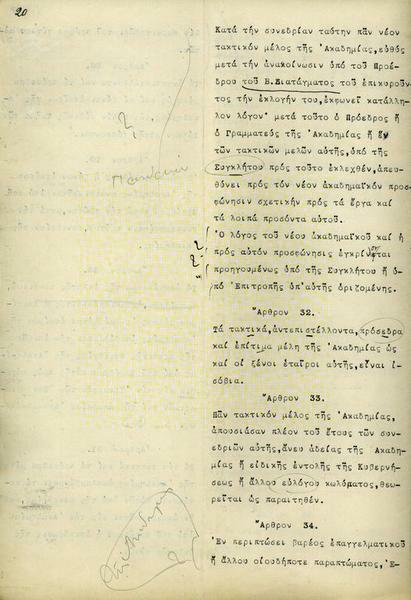 20
Κατά τήν συνεδρίαν ταύτην πᾶν νέον
τακτικόν μέλος τῆς Ἀκαδημίας, εὐθύς
μετά τήν ἀνακοίνωσιν ὑπό τοῦ Προέ-
δρου τοῦ Β.Διατάγματος τοῦ ἐπικυροῦν-
τος τήν ἐκλογήν του, ἐκφωνεῖ κατάλλη-
λον λόγον· μετά τοῦτο ὁ Πρόεδρος ἤ
ὁ Γραμματεύς τῆς Ἀκαδημίας ἤ ἕν
τῶν τακτικῶν μελῶν αὐτῆς, ὑπό τῆς
Συγκλήτου πρός τοῦτο ἐκλεχθέν, ἀπευ-
θύνει πρός τόν νέον ἀκαδημαϊκόν προσ-
φώνησιν σχετικήν πρός τά ἔργα καί
τά λοιπά προσόντα αὐτοῦ.
Ὁ λόγος τοῦ νέου ἀκαδημαϊκοῦ καί ἡ
πρός αὐτόν προσφώνησις ἐγκρίνονται
προηγουμένως ὑπό τῆς Συγκλήτου ἤ ὑ-
πό Ἐπιτροπῆς ὑπ'αὐτῆς ὁριζομένης.
Ἄρθρον 32.
Τά τακτικά, ἀντεπιστέλλοντα, πρόσεδρα
καί ἐπίτιμα μέλη τῆς Ἀκαδημίας ὡς
καί οἱ ξένοι ἑταῖροι αὐτῆς, εἶναι ἰ-
σόβια.
Ἄρθρον 33.
Πᾶν τακτικόν μέλος τῆς Ἀκαδημίας,
ἀπουσιάσαν πλέον τοῦ ἔτους τῶν συνε-
δριῶν αὐτῆς, ἄνευ ἀδείας τῆς Ἀκαδη-
μίας ἤ εἰδικῆς ἐντολῆς τῆς Κυβερνή-
σεως ἤ ἄλλου εὐλόγου κωλύματος, θεω-
ρεῖται ὡς παραιτηθέν.
Ἄρθρον 34.
Ἐν περιπτώσει βαρέος ἐπαγγελματικοῦ
ἤ ἄλλου οἱουδήποτε παραπτώματος, Ἑ-